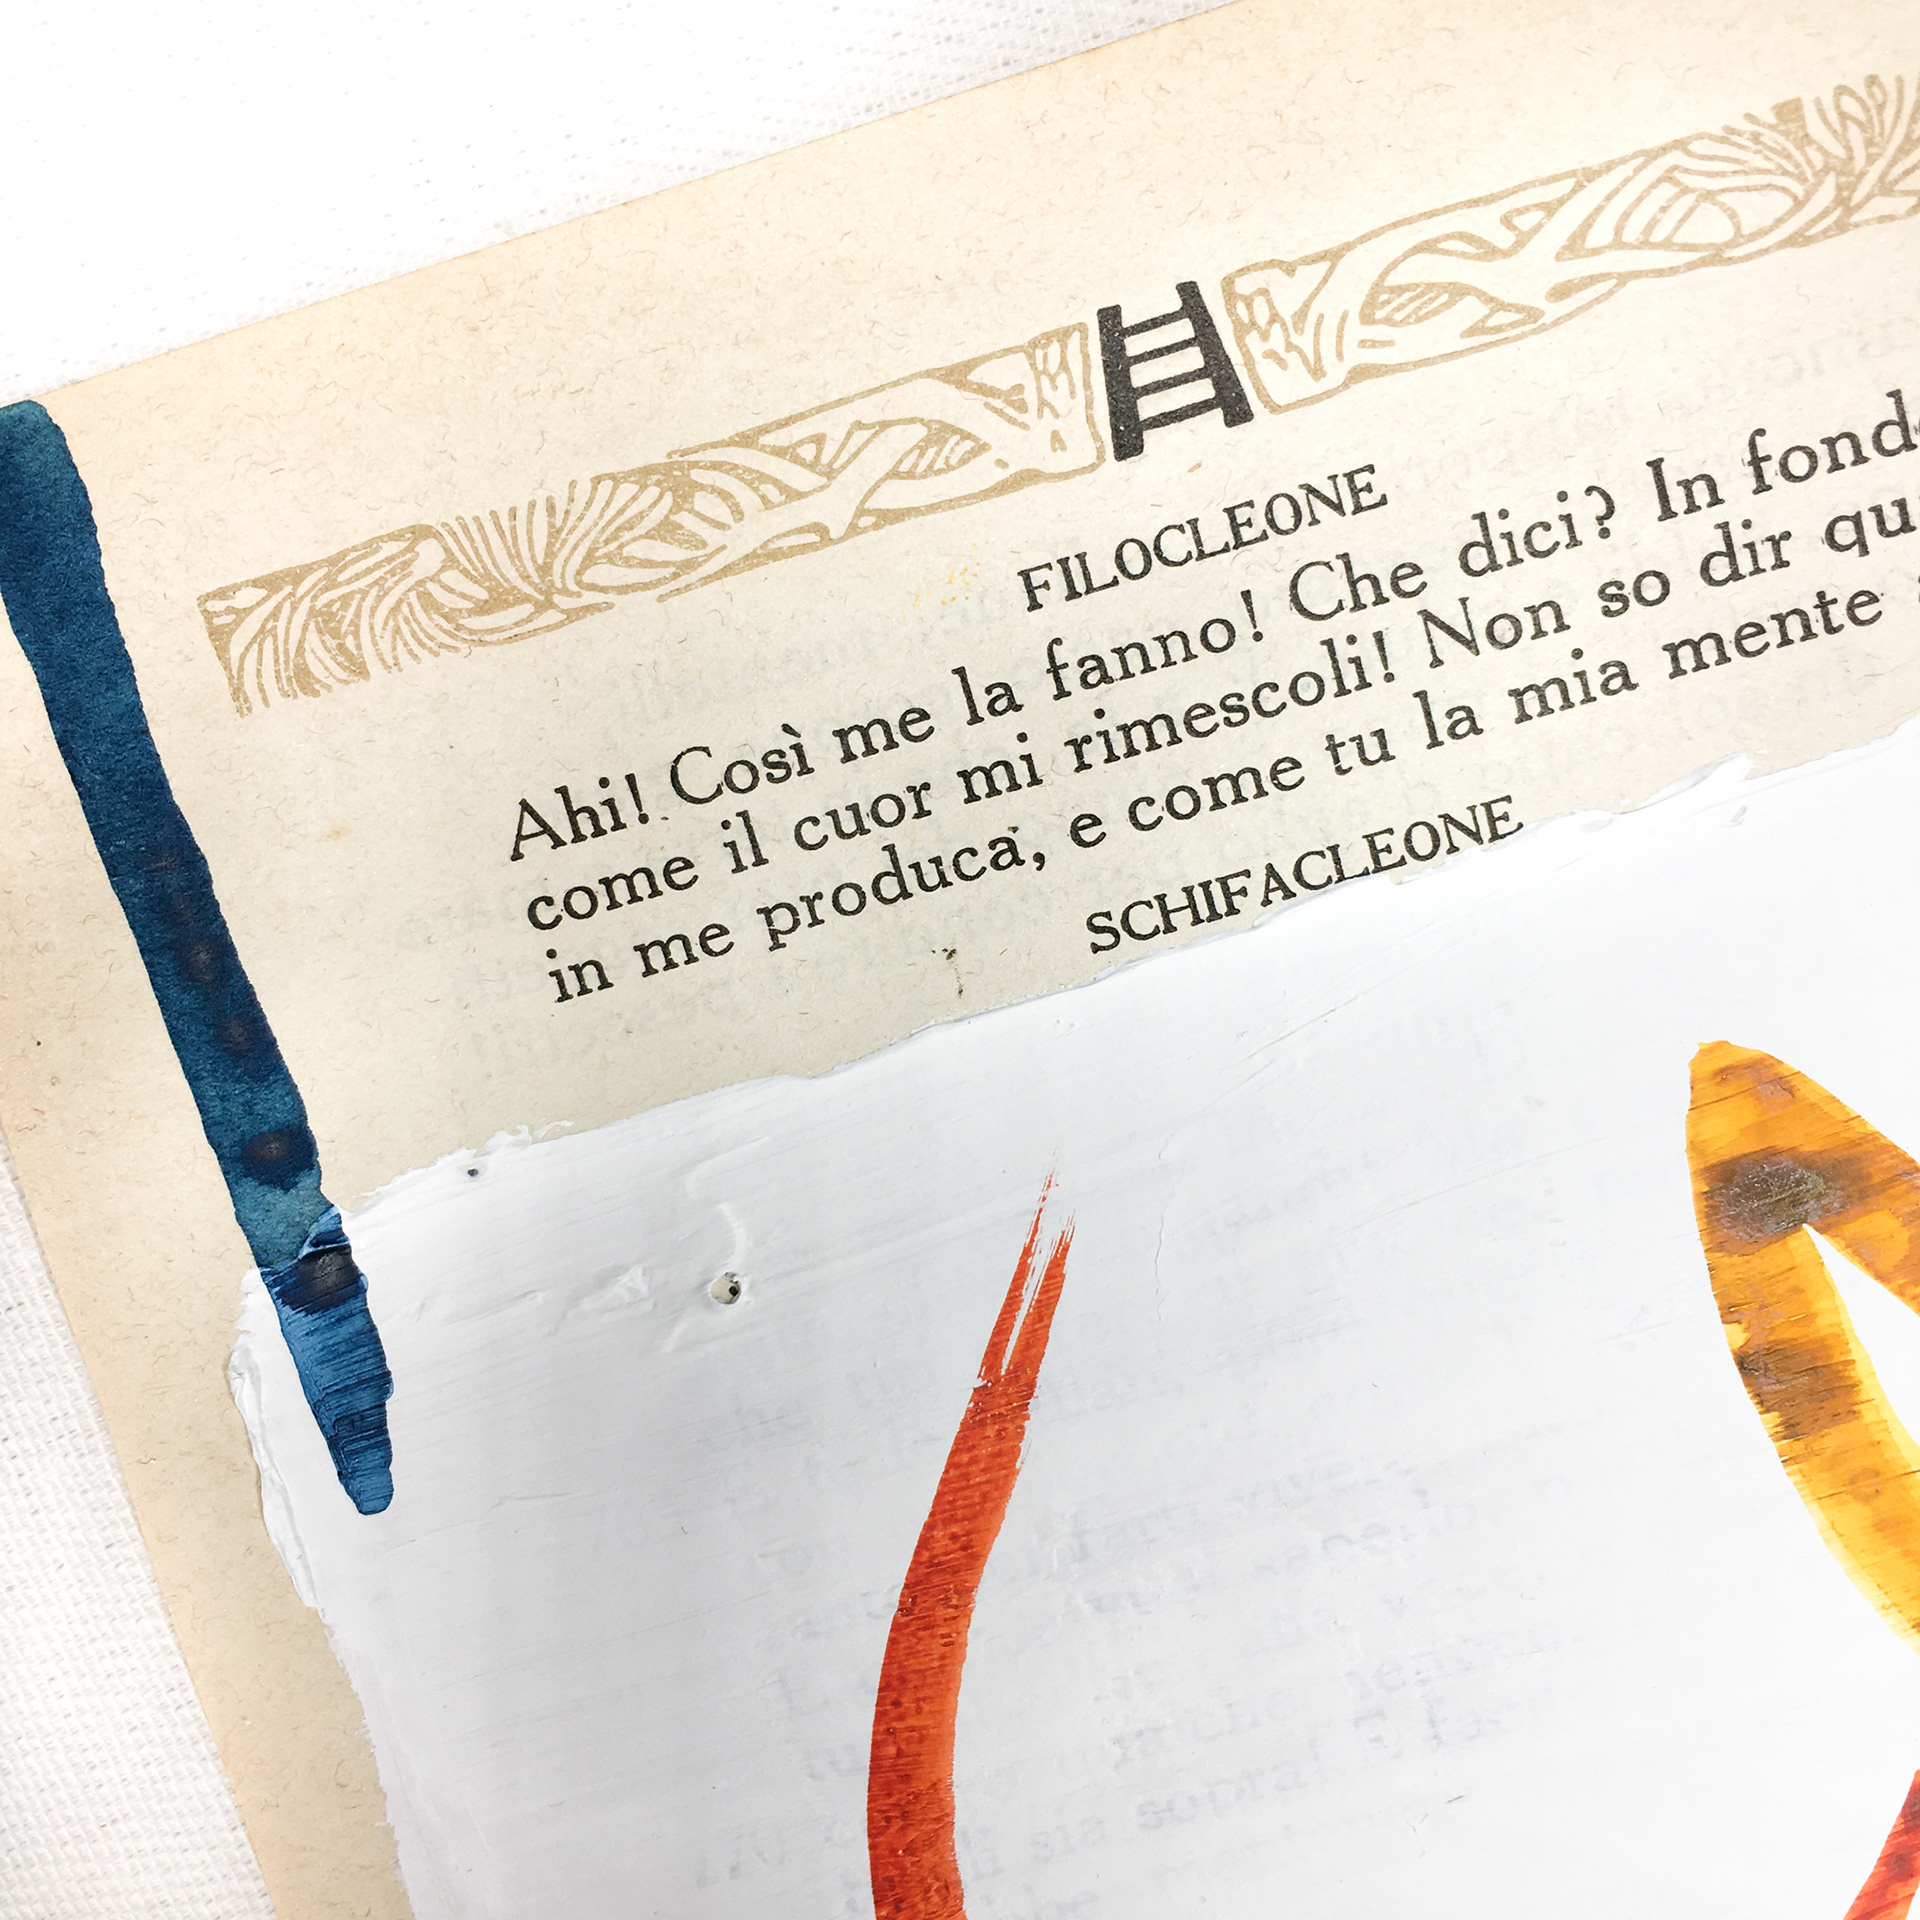 FILOCLEONE
Ahi! Così me la fanno! Che dici? In fond
come il cuor mi rimescoli! Non so dir qu
in me produca, e come tu la mia mente
SCHIFACLEONE